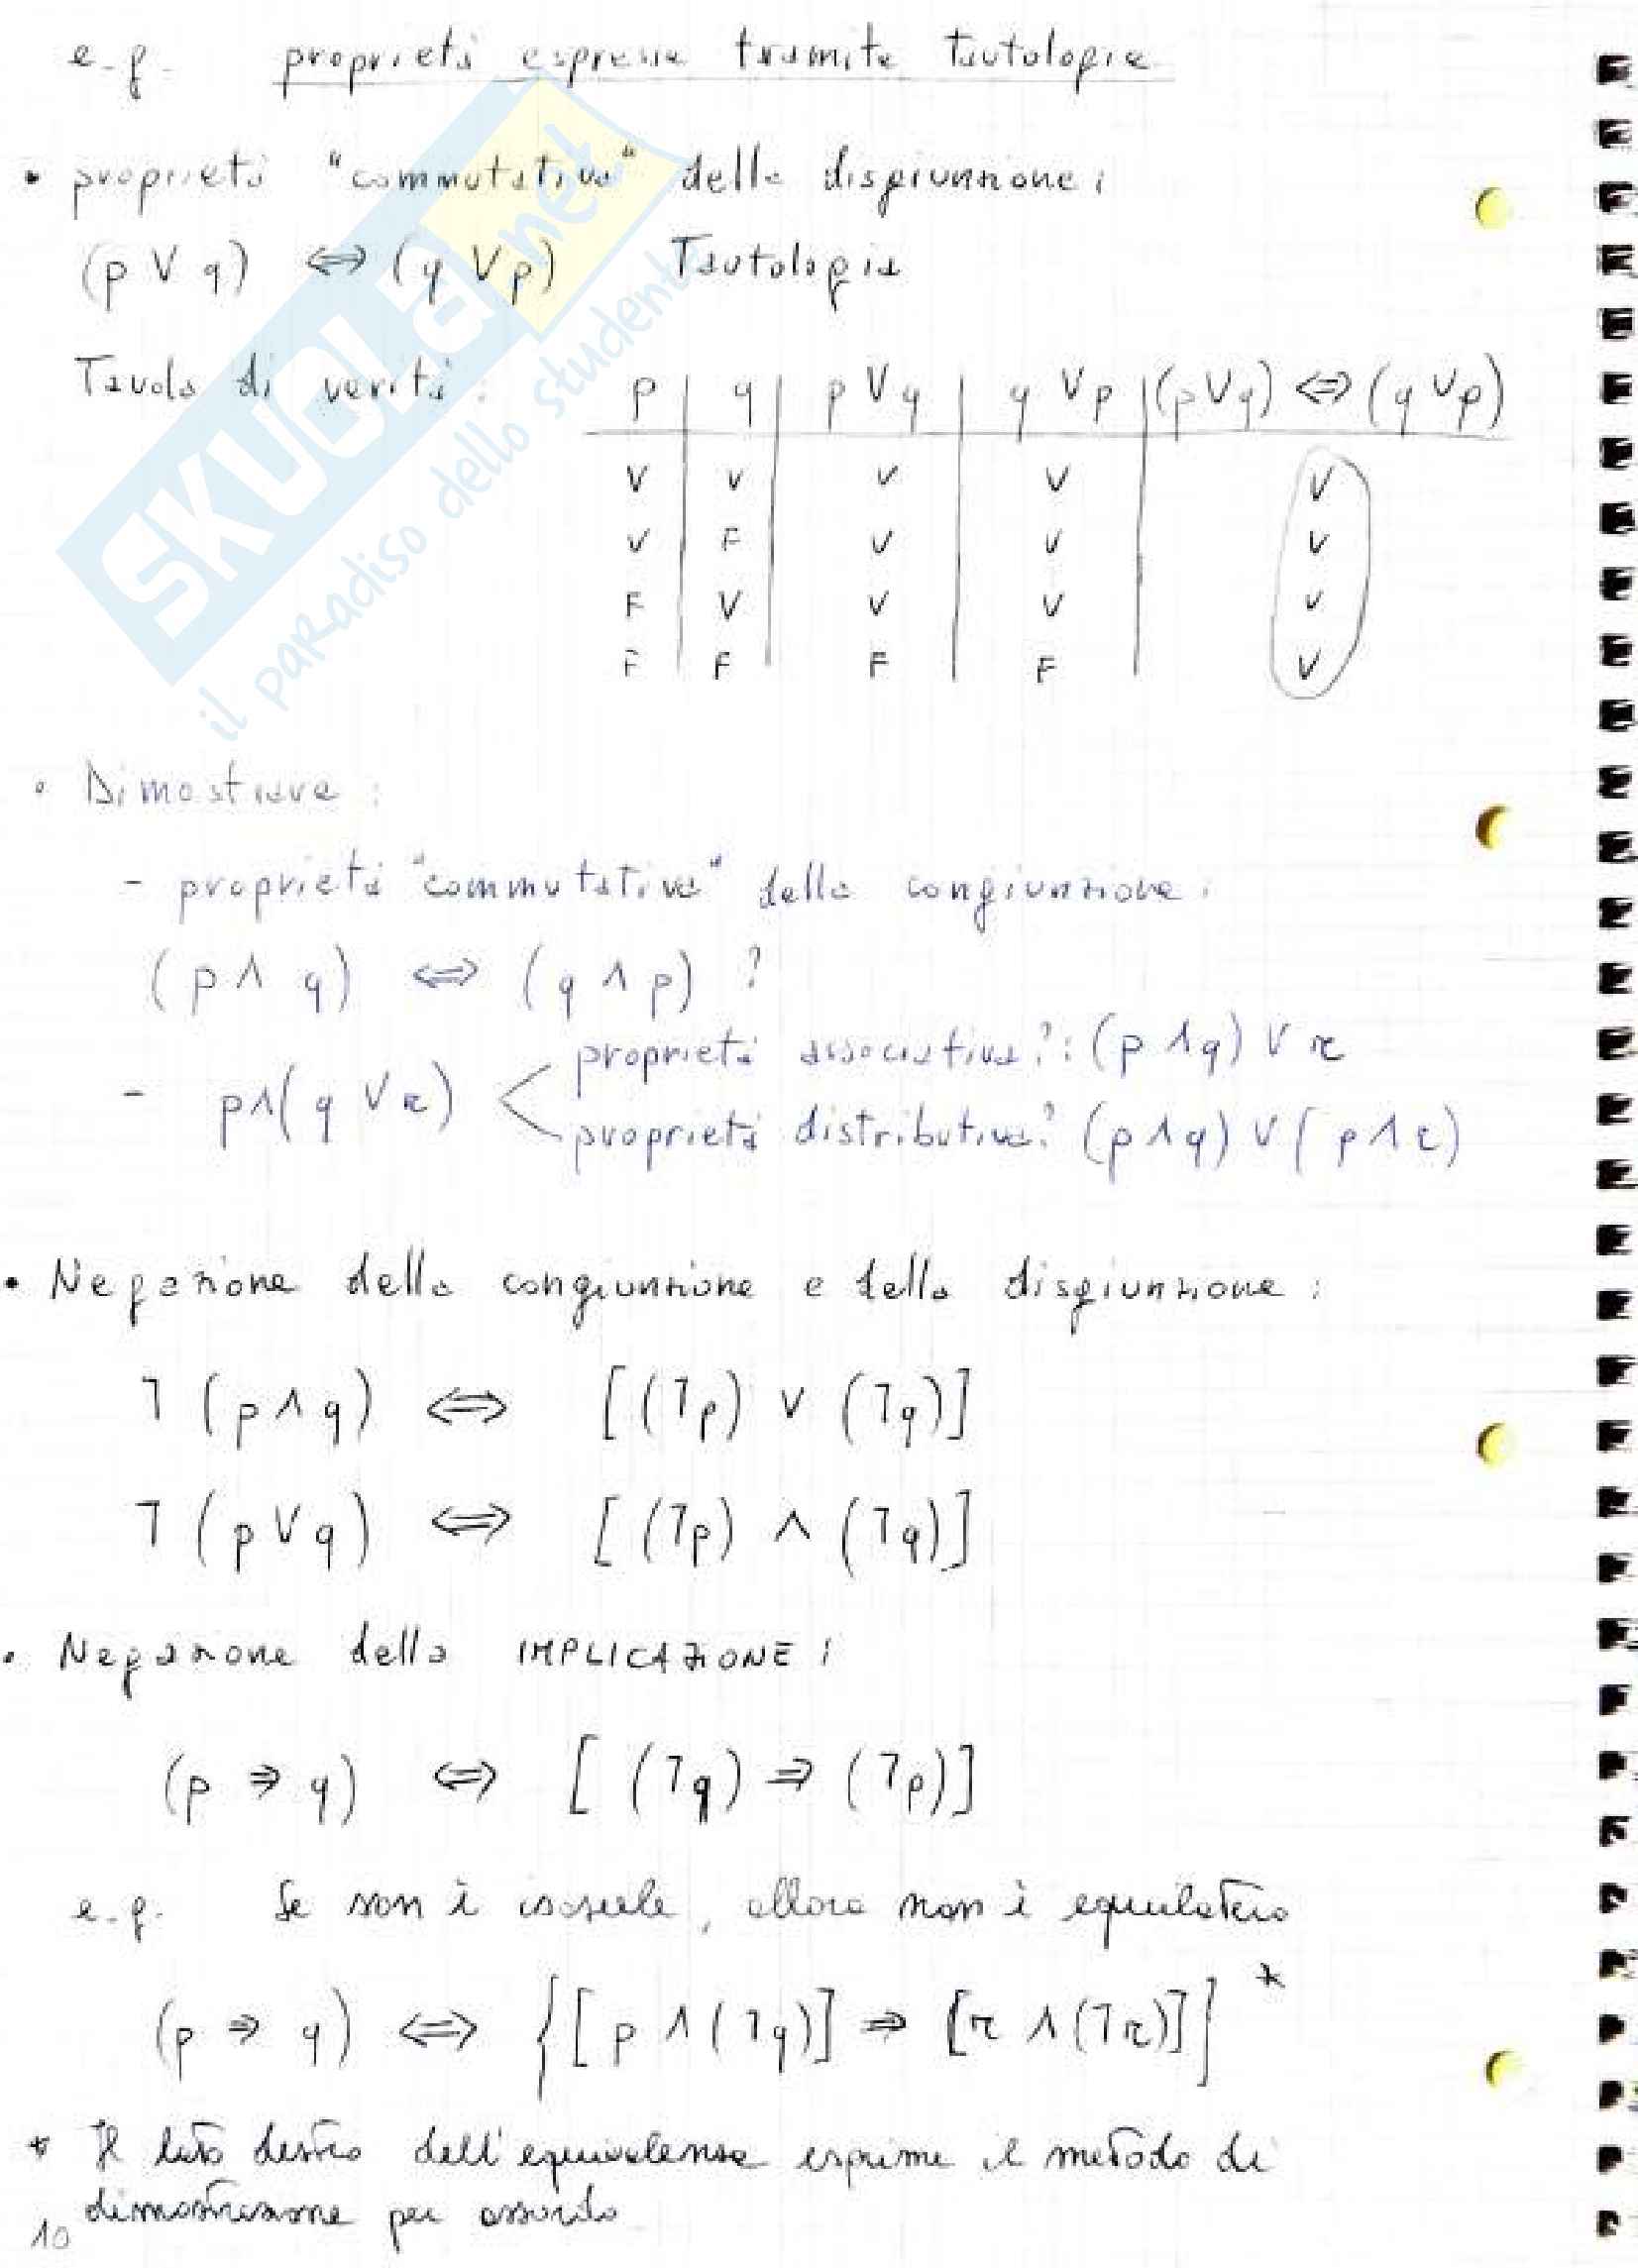 e.g. proprietà espresse tramite tautologie
• proprietà "commutativa" della disgiunzione:
(p ∨ q) ⇔ (q ∨ p) Tautologia
Tavola di verità: p | q | p ∨ q | q ∨ p | (p∨q) ⇔ (q ∨p)
V V V V V
V F V V V
F V V V V
F F F F V
• Dimostrare:
- proprietà "commutativa" della congiunzione:
(p ∧ q) ⇔ (q ∧ p) ?
proprietà associativa?: (p ∧q) ∨ r
- p∧(q ∨ r)
proprietà distributiva? (p ∧q) ∨ (p ∧ r)
• Negazione della congiunzione e della disgiunzione:
¬ (p ∧ q) ⇔ [(¬p) ∨ (¬q)]
¬ (p ∨ q) ⇔ [(¬p) ∧ (¬q)]
• Negazione della IMPLICAZIONE:
(p ⇒ q) ⇔ [(¬q) ⇒ (¬p)]
e.g. Se non è isoscele, allora non è equilatero
(p ⇒ q) ⇔ {[p ∧ (¬q)] ⇒ [r ∧ (¬r)]} *
* Il lato destro dell'equivalenza esprime il metodo di
dimostrazione per assurdo
10
SKUOLA.net
il paradiso dello studente